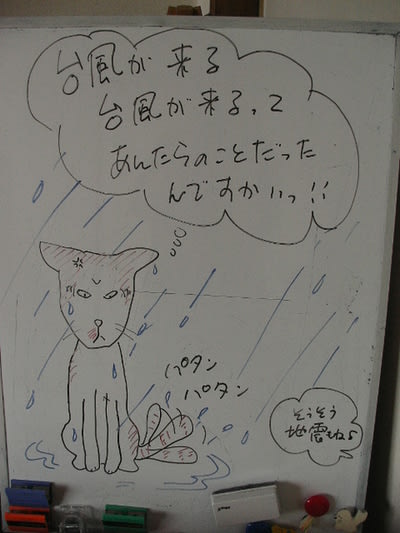 台風が来る
台風が来る、って
あんたらのことだった
んですかいっ!!
パタン
パタン
そうそう
地震もね